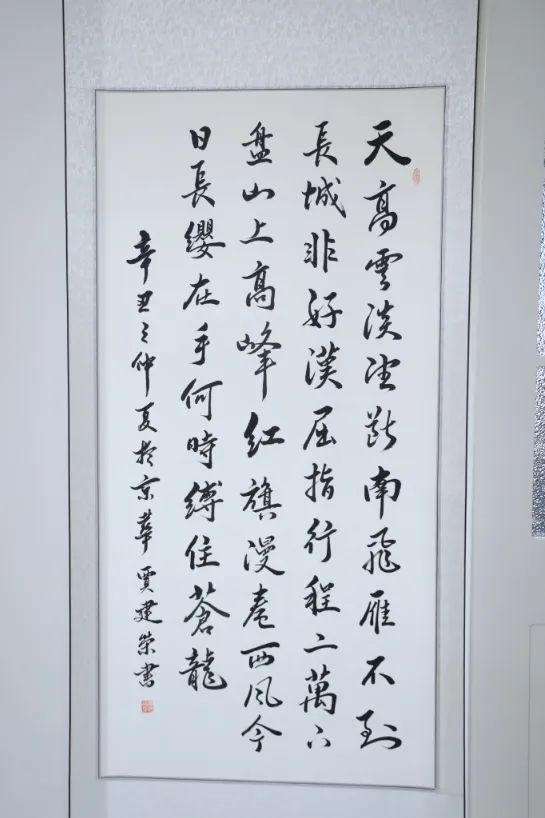 天高雲淡望断南飛雁不到
長城非好漢屈指行程二萬六
盘山上高峰紅旗漫卷西風今
日長纓在手何時縛住蒼龍
辛丑之仲夏於京華賈建榮書